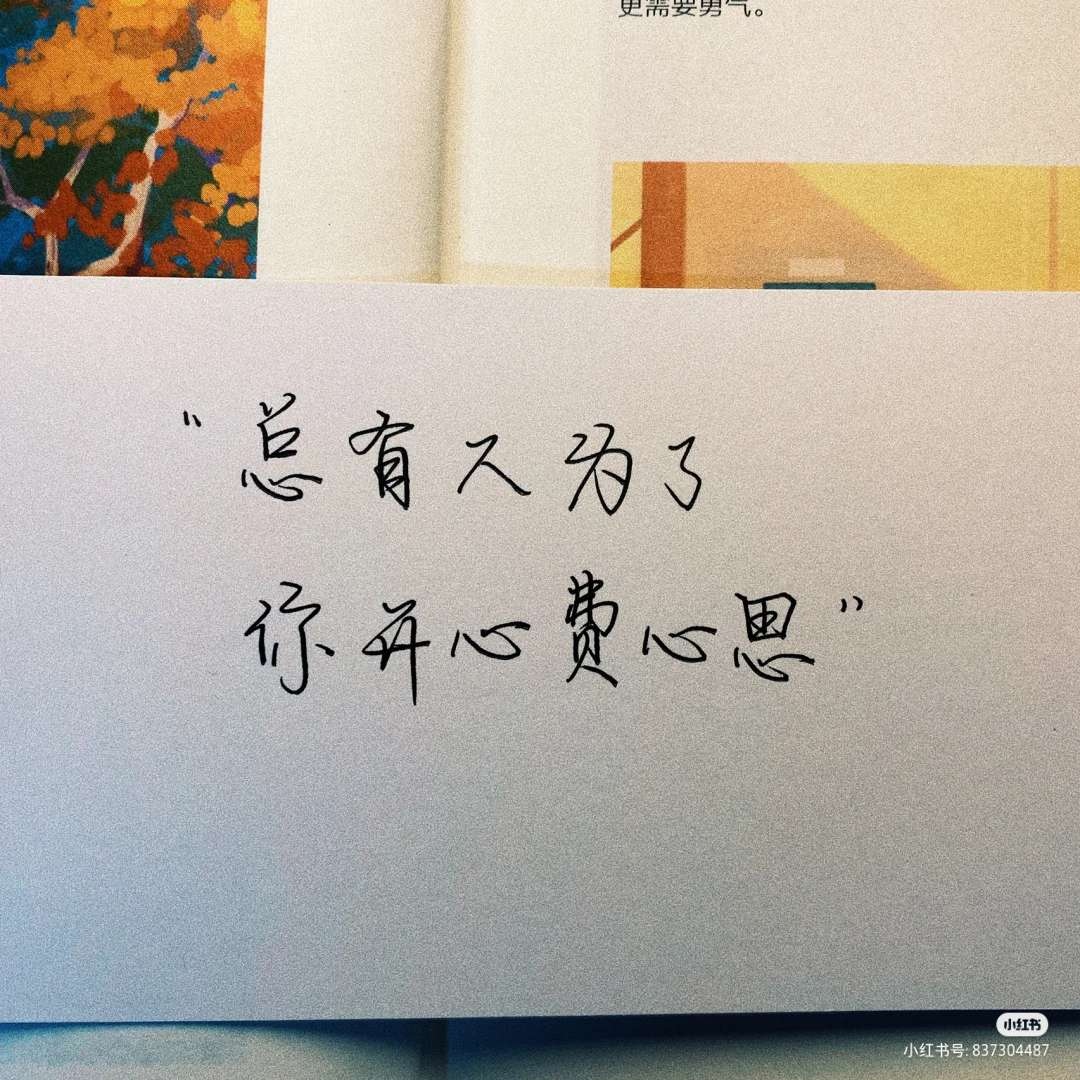 更需要勇气。
“总有人为了
你开心费心思”
小红书
小红书号: 837304487